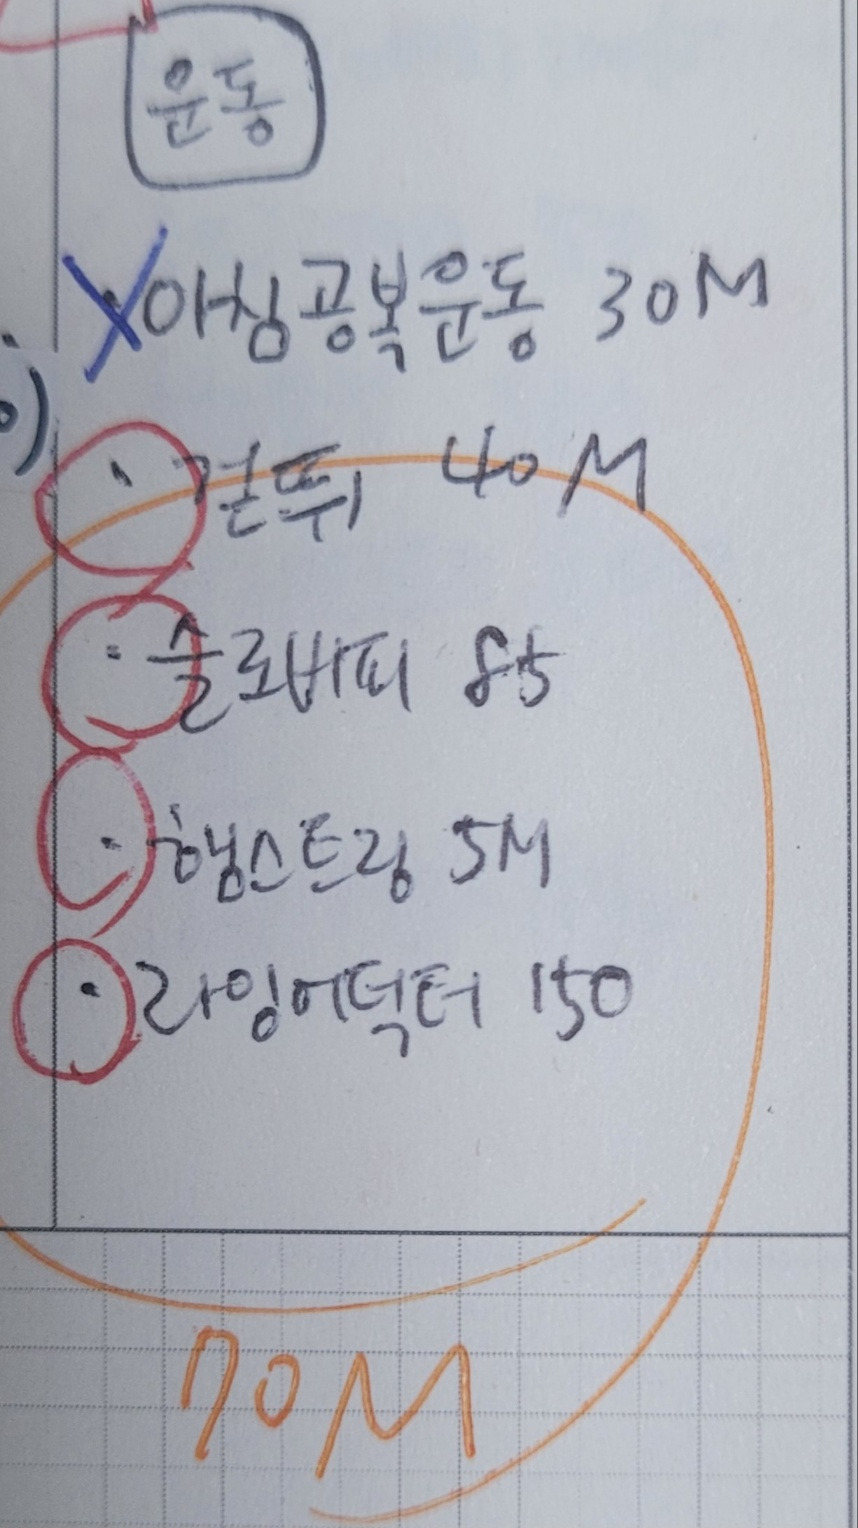 운동
아침공복운동 30M
걷뛰 40M
슬로버피 85
햄스트링 5M
라잉어덕터 150
70M